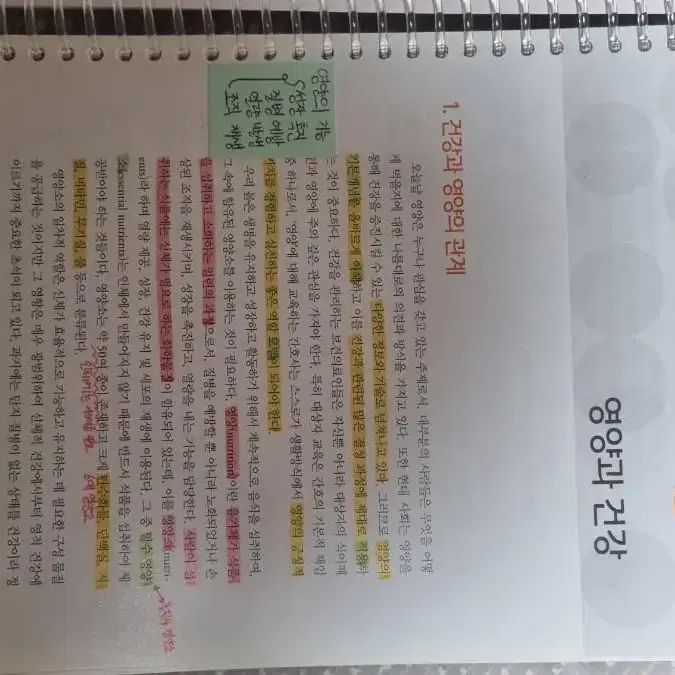 영양과 건강
1. 건강과 영양의 관계
영양의 기능
성장 촉진
질병 예방
열량 발생
조직 재생
오늘날 영양은 누구나 관심을 갖고 있는 주제로서, 대부분의 사람들은 무엇을 어떻
게 먹을지에 대한 나름대로의 의견과 방식을 가지고 있다. 또한 현대 사회는 영양을
통해 건강을 증진시킬 수 있는 다양한 정보와 기술로 넘쳐나고 있다. 그러므로 영양의
기본개념을 올바르게 이해하고 이를 건강과 관련된 많은 결정 과정에 제대로 적용하
는 것이 중요하다. 건강을 관리하는 보건의료인들은 자신뿐 아니라 대상자의 식이패
턴과 영양에 주의 깊은 관심을 가져야 한다. 특히 대상자 교육은 간호의 기본적 책임
중 하나로서, 영양에 대해 교육하는 간호사는 스스로가 생활방식에서 영양의 긍정적
가치를 경험하고 실천하는 좋은 역할 모델이 되어야 한다.
우리 몸은 생명을 유지하고 성장하고 활동하기 위해서 계속적으로 음식을 섭취하여,
그 속에 함유된 영양소를 이용하는 것이 필요하다. 영양(nutrition)이란 유기체가 식품
을 섭취하고 소화하는 일련의 과정으로서, 질병을 예방할 뿐 아니라 노화되었거나 손
상된 조직을 재생시키며, 성장을 촉진하고, 열량을 내는 기능을 담당한다. 사람이 섭
취하는 식품에는 신체가 필요로 하는 화학물질이 함유되어 있는데, 이를 영양소(nutri-
ents)라 하며 열량 제공, 성장, 건강 유지 및 세포의 재생에 이용된다. 그 중 필수 영양
소(essential nutrients)는 인체에서 만들어지지 않기 때문에 반드시 식품을 섭취하여 제
공받아야 하는 것들이다. 영양소는 약 50여 종이 존재하고 크게 탄수화물, 단백질, 지
질, 비타민, 무기질, 물 등으로 분류된다.
영양소의 일차적 역할은 신체가 효율적으로 기능하고 유지하는 데 필요한 구성 물질
을 공급하는 것이지만 그 영향은 매우 광범위하여 신체적 건강에서부터 영적 건강에
이르기까지 중요한 초석이 되고 있다. 과거에는 단지 질병이 없는 상태를 건강이라 정